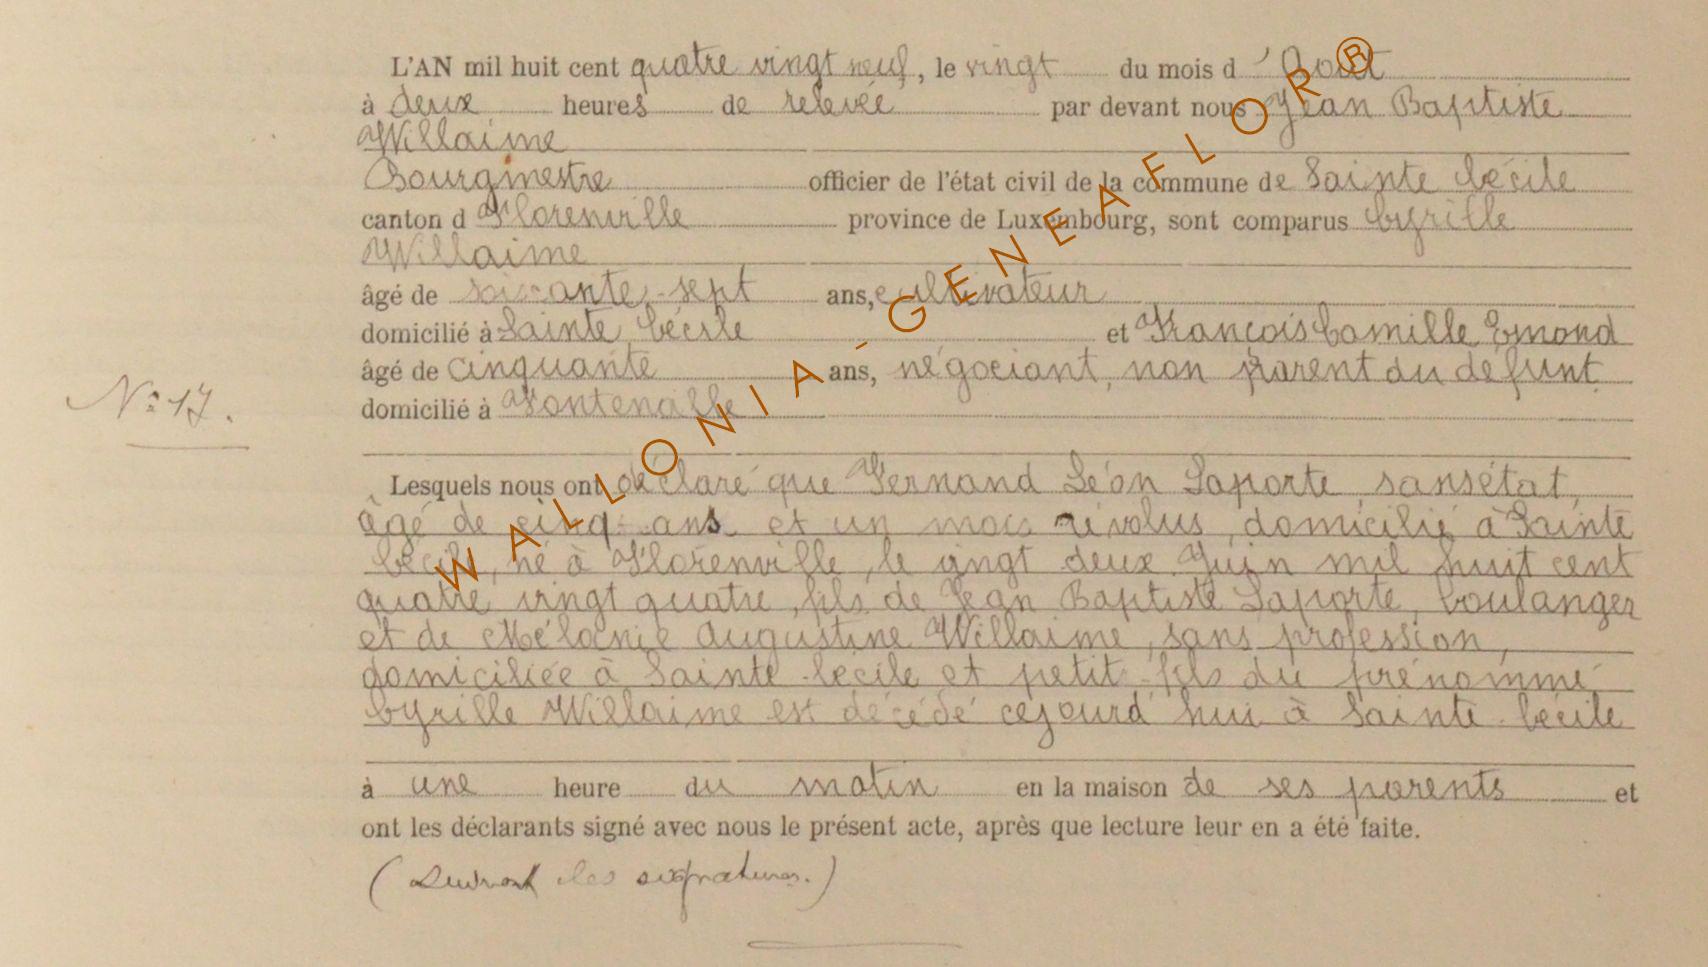 L'AN mil huit cent quatre vingt neuf, le vingt du mois d'Août
à deux heures de relevée, par devant nous Jean Baptiste
Willaime
Bourgmestre officier de l'état civil de la commune de Sainte Cécile
canton d Florenville province de Luxembourg, sont comparus Cyrille
Willaime
âgé de soixante-sept ans, cultivateur
domicilié à Sainte Cécile et François Camille Emond
âgé de cinquante ans, négociant, non parent du défunt
domicilié à Fontenaille
Lesquels nous ont déclaré que Fernand Léon Laporte, sans état,
âgé de cinq ans et un mois révolus, domicilié à Sainte
Cécile, né à Florenville, le vingt deux Juin mil huit cent
quatre vingt quatre, fils de Jean Baptiste Laporte, boulanger
et de Mélanie Augustine Willaime, sans profession,
domiciliée à Sainte-Cécile et petit-fils du prénommé
Cyrille Willaime est décédé cejourd'hui à Sainte-Cécile
à une heure du matin en la maison de ses parents et
ont les déclarants signé avec nous le présent acte, après que lecture leur en a été faite.
(Suivent les signatures.)
N° 17.
WALLONIA-GENEAFLOR®